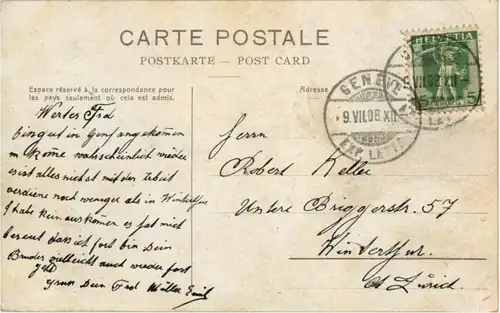 CARTE POSTALE
POSTKARTE - POST CARD
Espace réservé à la correspondance pour
les pays seulement où cela est admis.
Adresse
HELVETIA
5 5
GENÈVE
9.VII.08. XII
EXP. LETT.
9.VII.08 XII
Wertes Frd
Bin gut in Genf angekommen
u kome wahrscheinlich wieder
es ist alles nichst mit der Arbeit
verdiene noch weniger als in Winterthur
habe kein auskomen es hat mich
bereut dass ich fort bin Dein
Bruder vielleicht auch wieder fort
geht
Gruss Dein Frd Müller Emil
Herrn
Robert Keller
Untere Briggerstr. 57
Winterthur.
Ct Zürich.